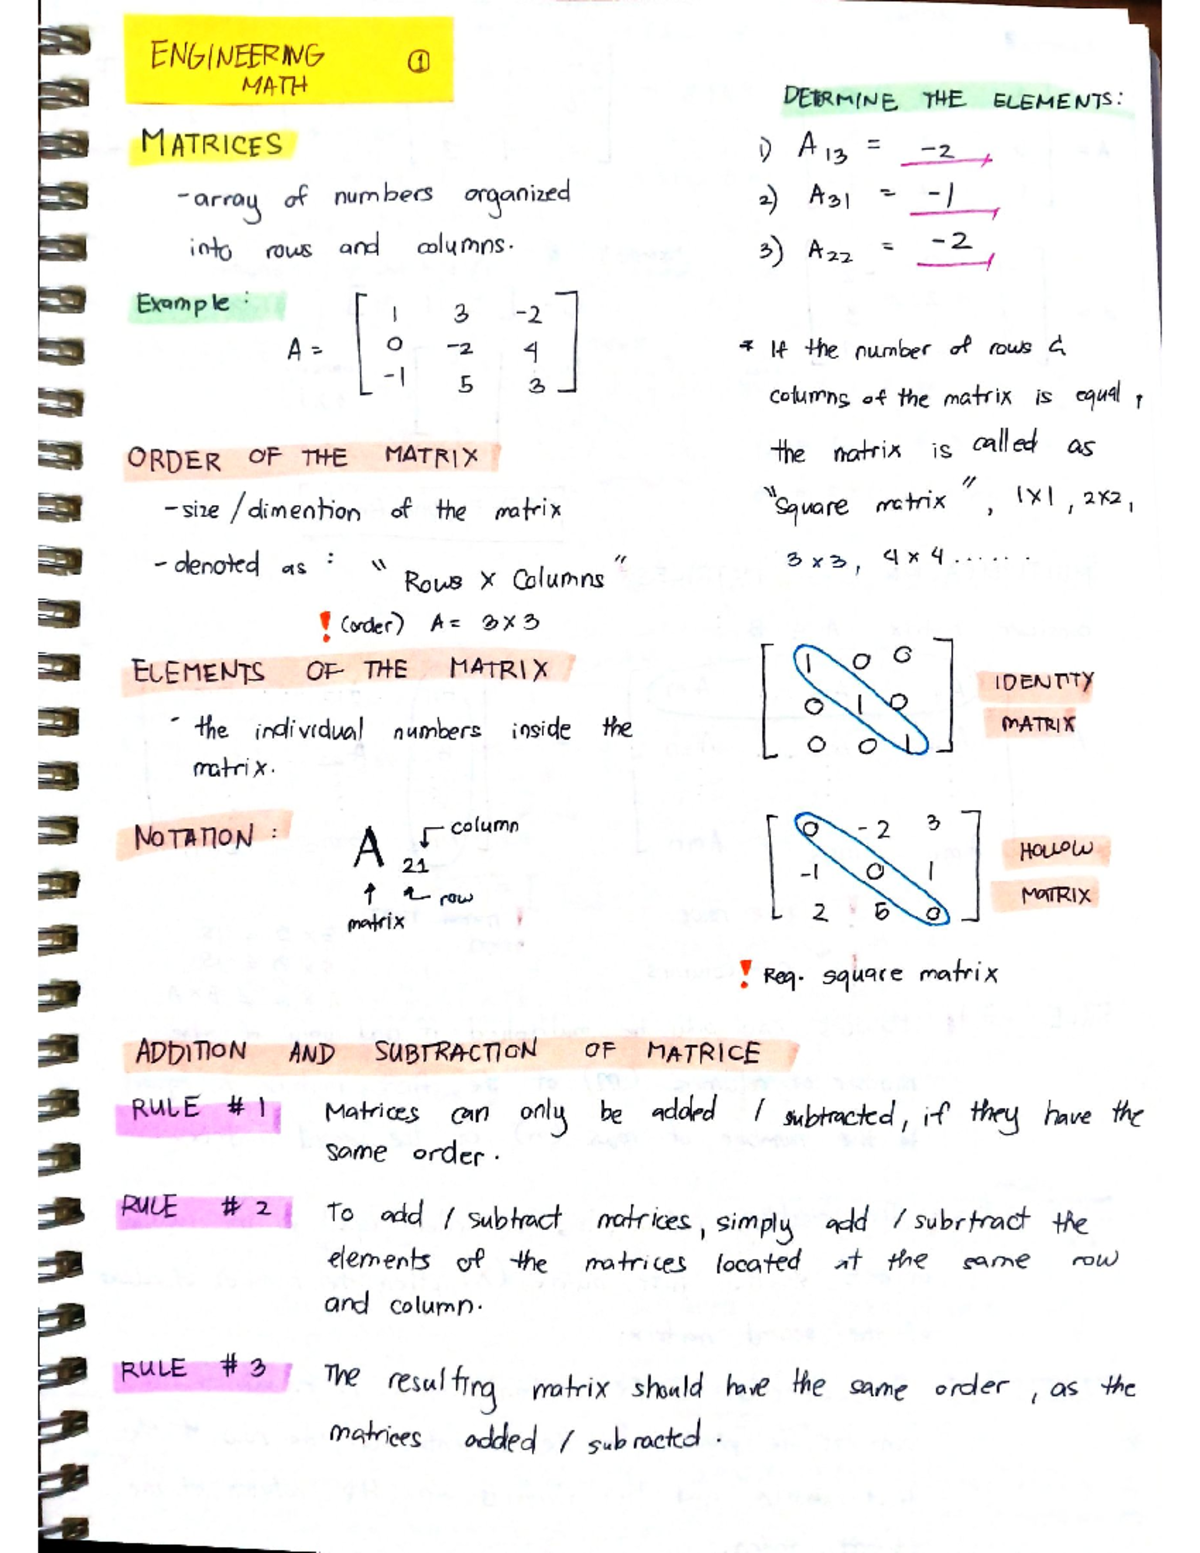 ENGINEERING ①
MATH
MATRICES
-array of numbers organized
into rows and columns.
Example:
A = [ 1 3 -2
0 -2 4
-1 5 3 ]
ORDER OF THE MATRIX
-size / dimention of the matrix
-denoted as : "Rows X Columns"
! (order) A = 3X3
ELEMENTS OF THE MATRIX
- the individual numbers inside the
matrix.
NOTATION:
column
A 21
row
matrix
DETERMINE THE ELEMENTS:
1) A13 = -2
2) A31 = -1
3) A22 = -2
* If the number of rows &
columns of the matrix is equal,
the matrix is called as
"square matrix", 1X1, 2x2,
3x3, 4x4......
[ 1 0 0
0 1 0
0 0 1 ]
IDENTITY
MATRIX
[ 0 -2 3
-1 0 1
2 5 0 ]
HOLLOW
MATRIX
! Req. square matrix
ADDITION AND SUBTRACTION OF MATRICE
RULE #1 Matrices can only be added / subtracted, if they have the
same order.
RULE #2 To add / subtract matrices, simply add / subrtract the
elements of the matrices located at the same row
and column.
RULE #3 The resulting matrix should have the same order, as the
matrices added / subracted.